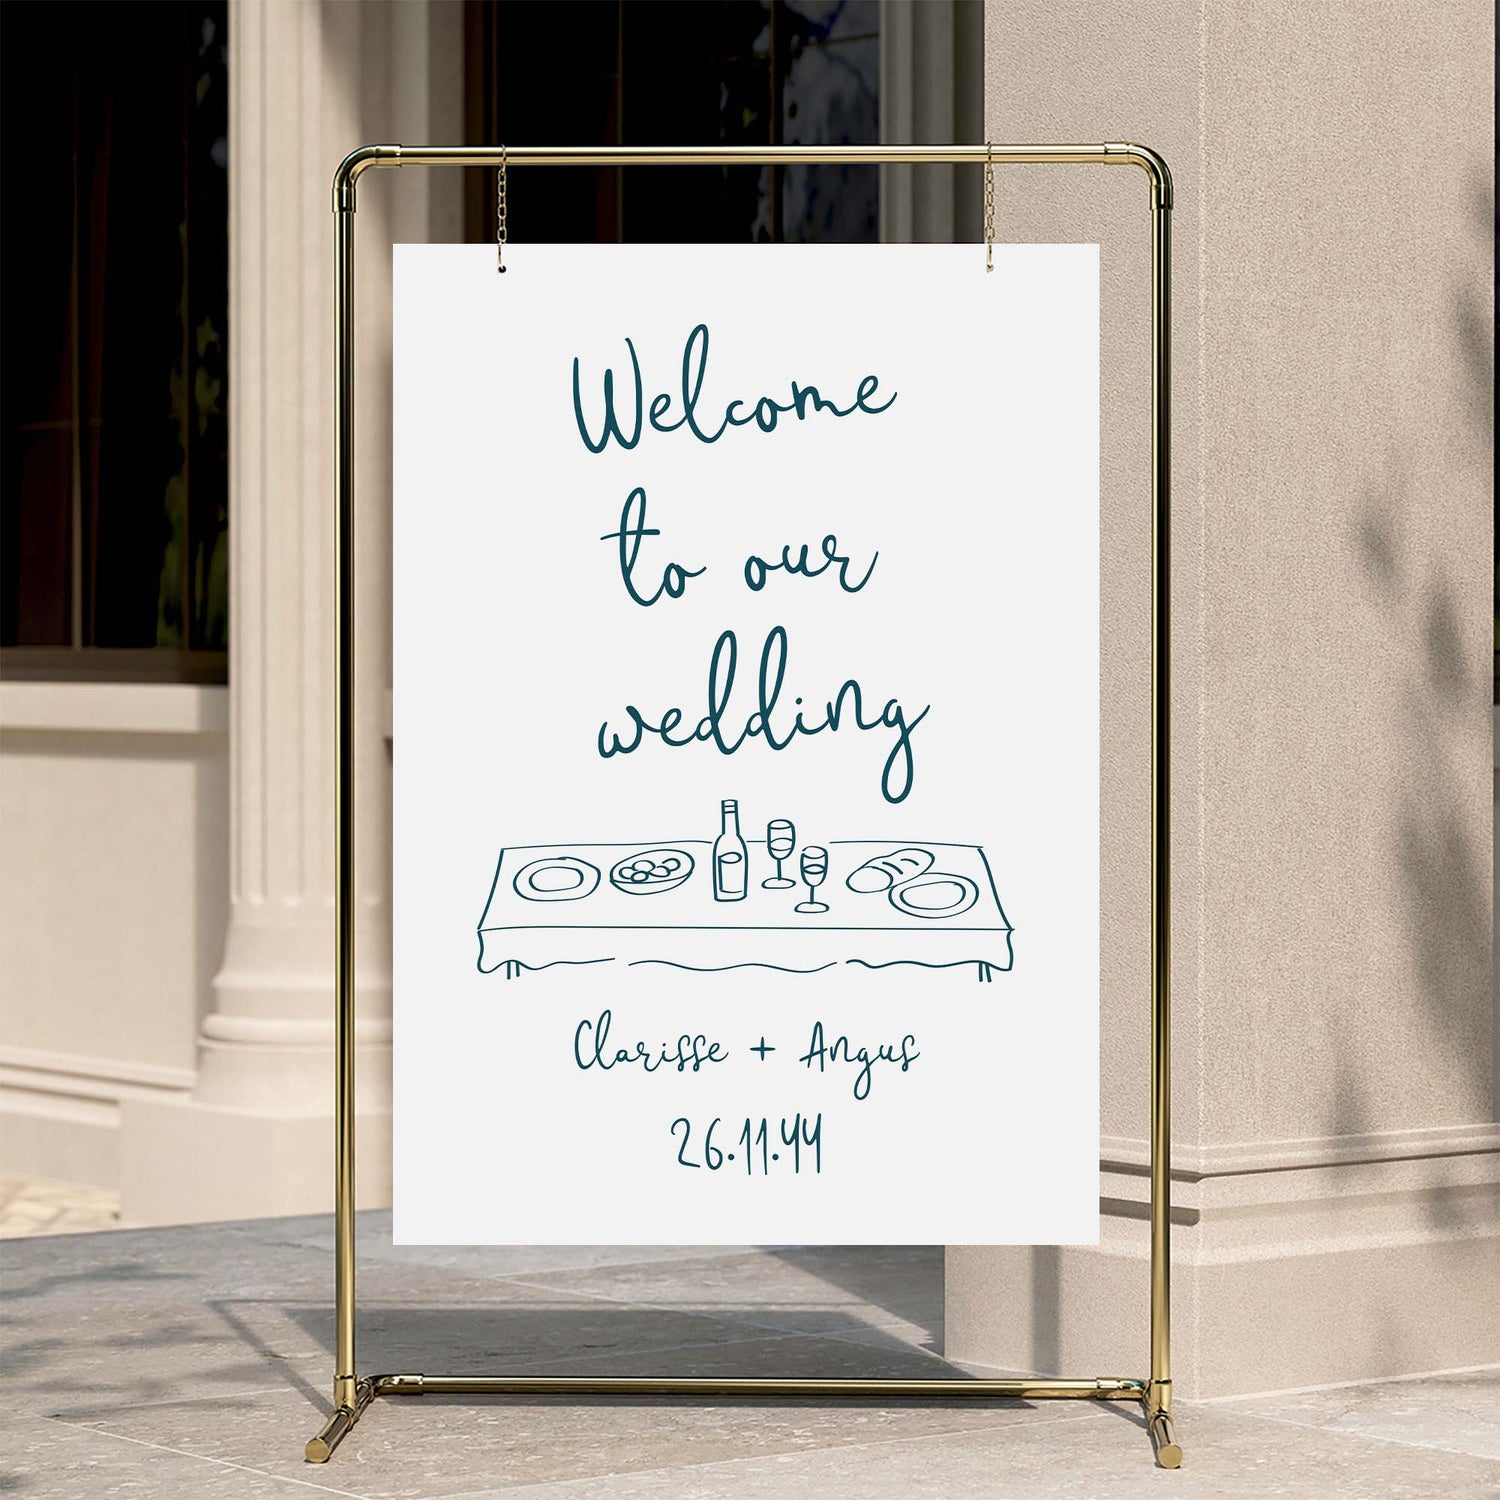 Welcome
to our
wedding
Clarisse + Angus
26.11.44